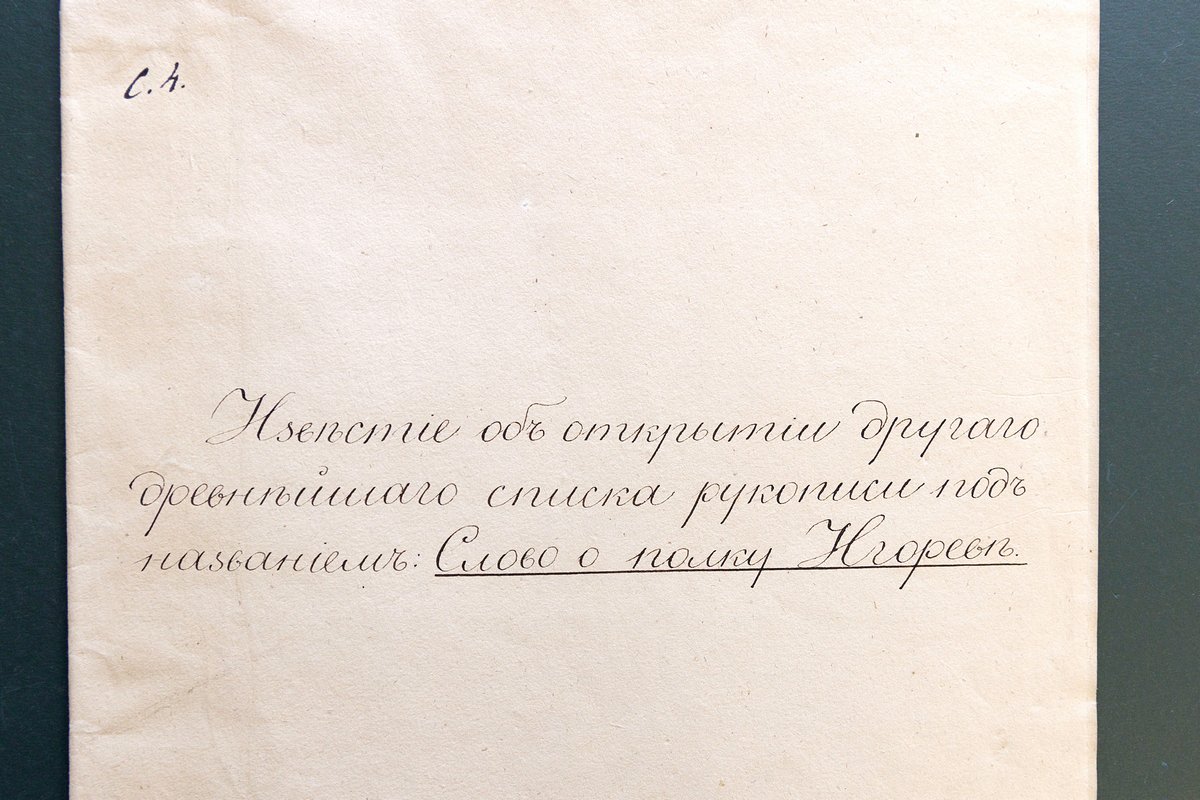 С. 4.
Извѣстіе объ открытіи другаго
древнѣйшаго списка рукописи подъ
названіемъ: Слово о полку Игоревѣ.